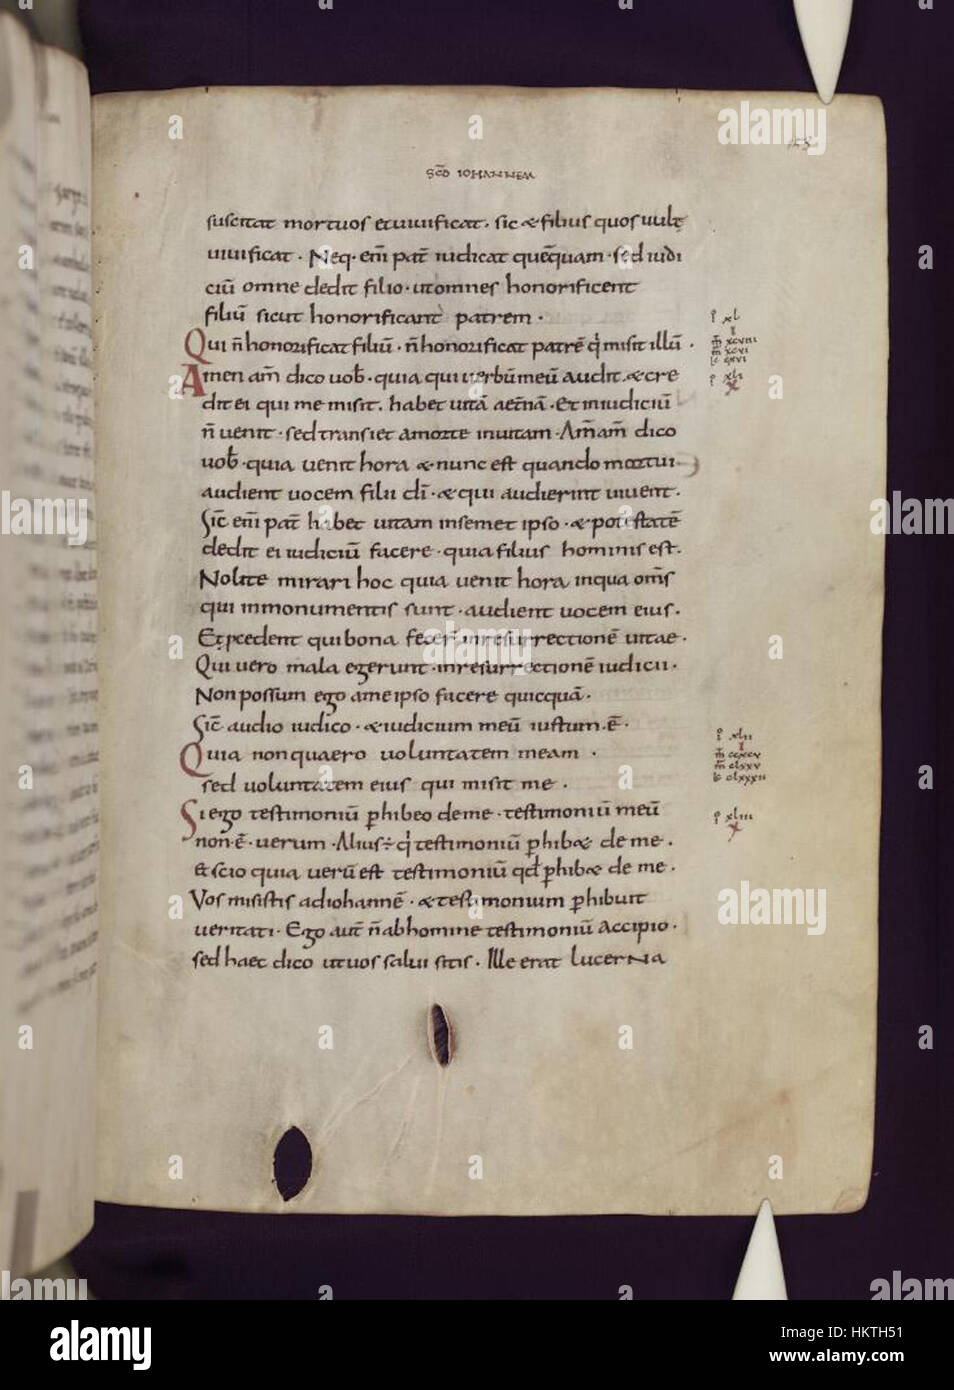 SCD̄ IOHANNEM
suscitat mortuos et uiuificat · sic & filius quos uult
uiuificat · Neq· em̄ pat̄ iudicat quēquam · sed iudi
ciū omne dedit filio · ut omnes honorificent
filiū sicut honorificant patrem ·
Qui n̄ honorificat filiū · n̄ honorificat patrē q̇ misit illū ·
Amen am̄ dico uob̄ · quia qui uerbū meū audit · & cre
dit ei qui me misit · habet uitā aet̄nā · Et in iudiciū
n̄ uenit · sed transiet a morte in uitam · Am̄ am̄ dico
uob̄ · quia uenit hora & nunc est quando mortui
audient uocem filii dī · & qui audierint uiuent ·
Sic̄ em̄ pat̄ habet uitam in semet ipso · & potestatē
dedit ei iudiciū facere · quia filius hominis est ·
Nolite mirari hoc quia uenit hora in qua om̄s
qui in monumentis sunt · audient uocem eius ·
Et ꝓcedent qui bona fecer̄ in resurrectionē uitae ·
Qui uero mala egerunt · in resurrectionē iudicii ·
Non possum ego a me ipso facere quicquā ·
Sic̄ audio iudico · & iudicium meū iustum · ē ·
Quia non quaero uoluntatem meam ·
sed uoluntatem eius qui misit me ·
Si ego testimoniū ꝑhibeo de me · testimoniū meū
non · ē · uerum · Alius ÷ q̇ testimoniū ꝑhib& de me ·
Et scio quia uerū est testimoniū qd̄ ꝑhib& de me ·
Vos misistis ad iohannē · & testimonium ꝑhibuit
ueritati · Ego aut̄ n̄ ab homine testimoniū accipio ·
sed haec dico ut uos salui sitis · Ille erat lucerna
xl
i
xcviii
xcvi
cxvi
xli
x
xlii
i
clxxv
clxxxii
xliii
x
alamy
alamy stock photo
HKTH51
www.alamy.com